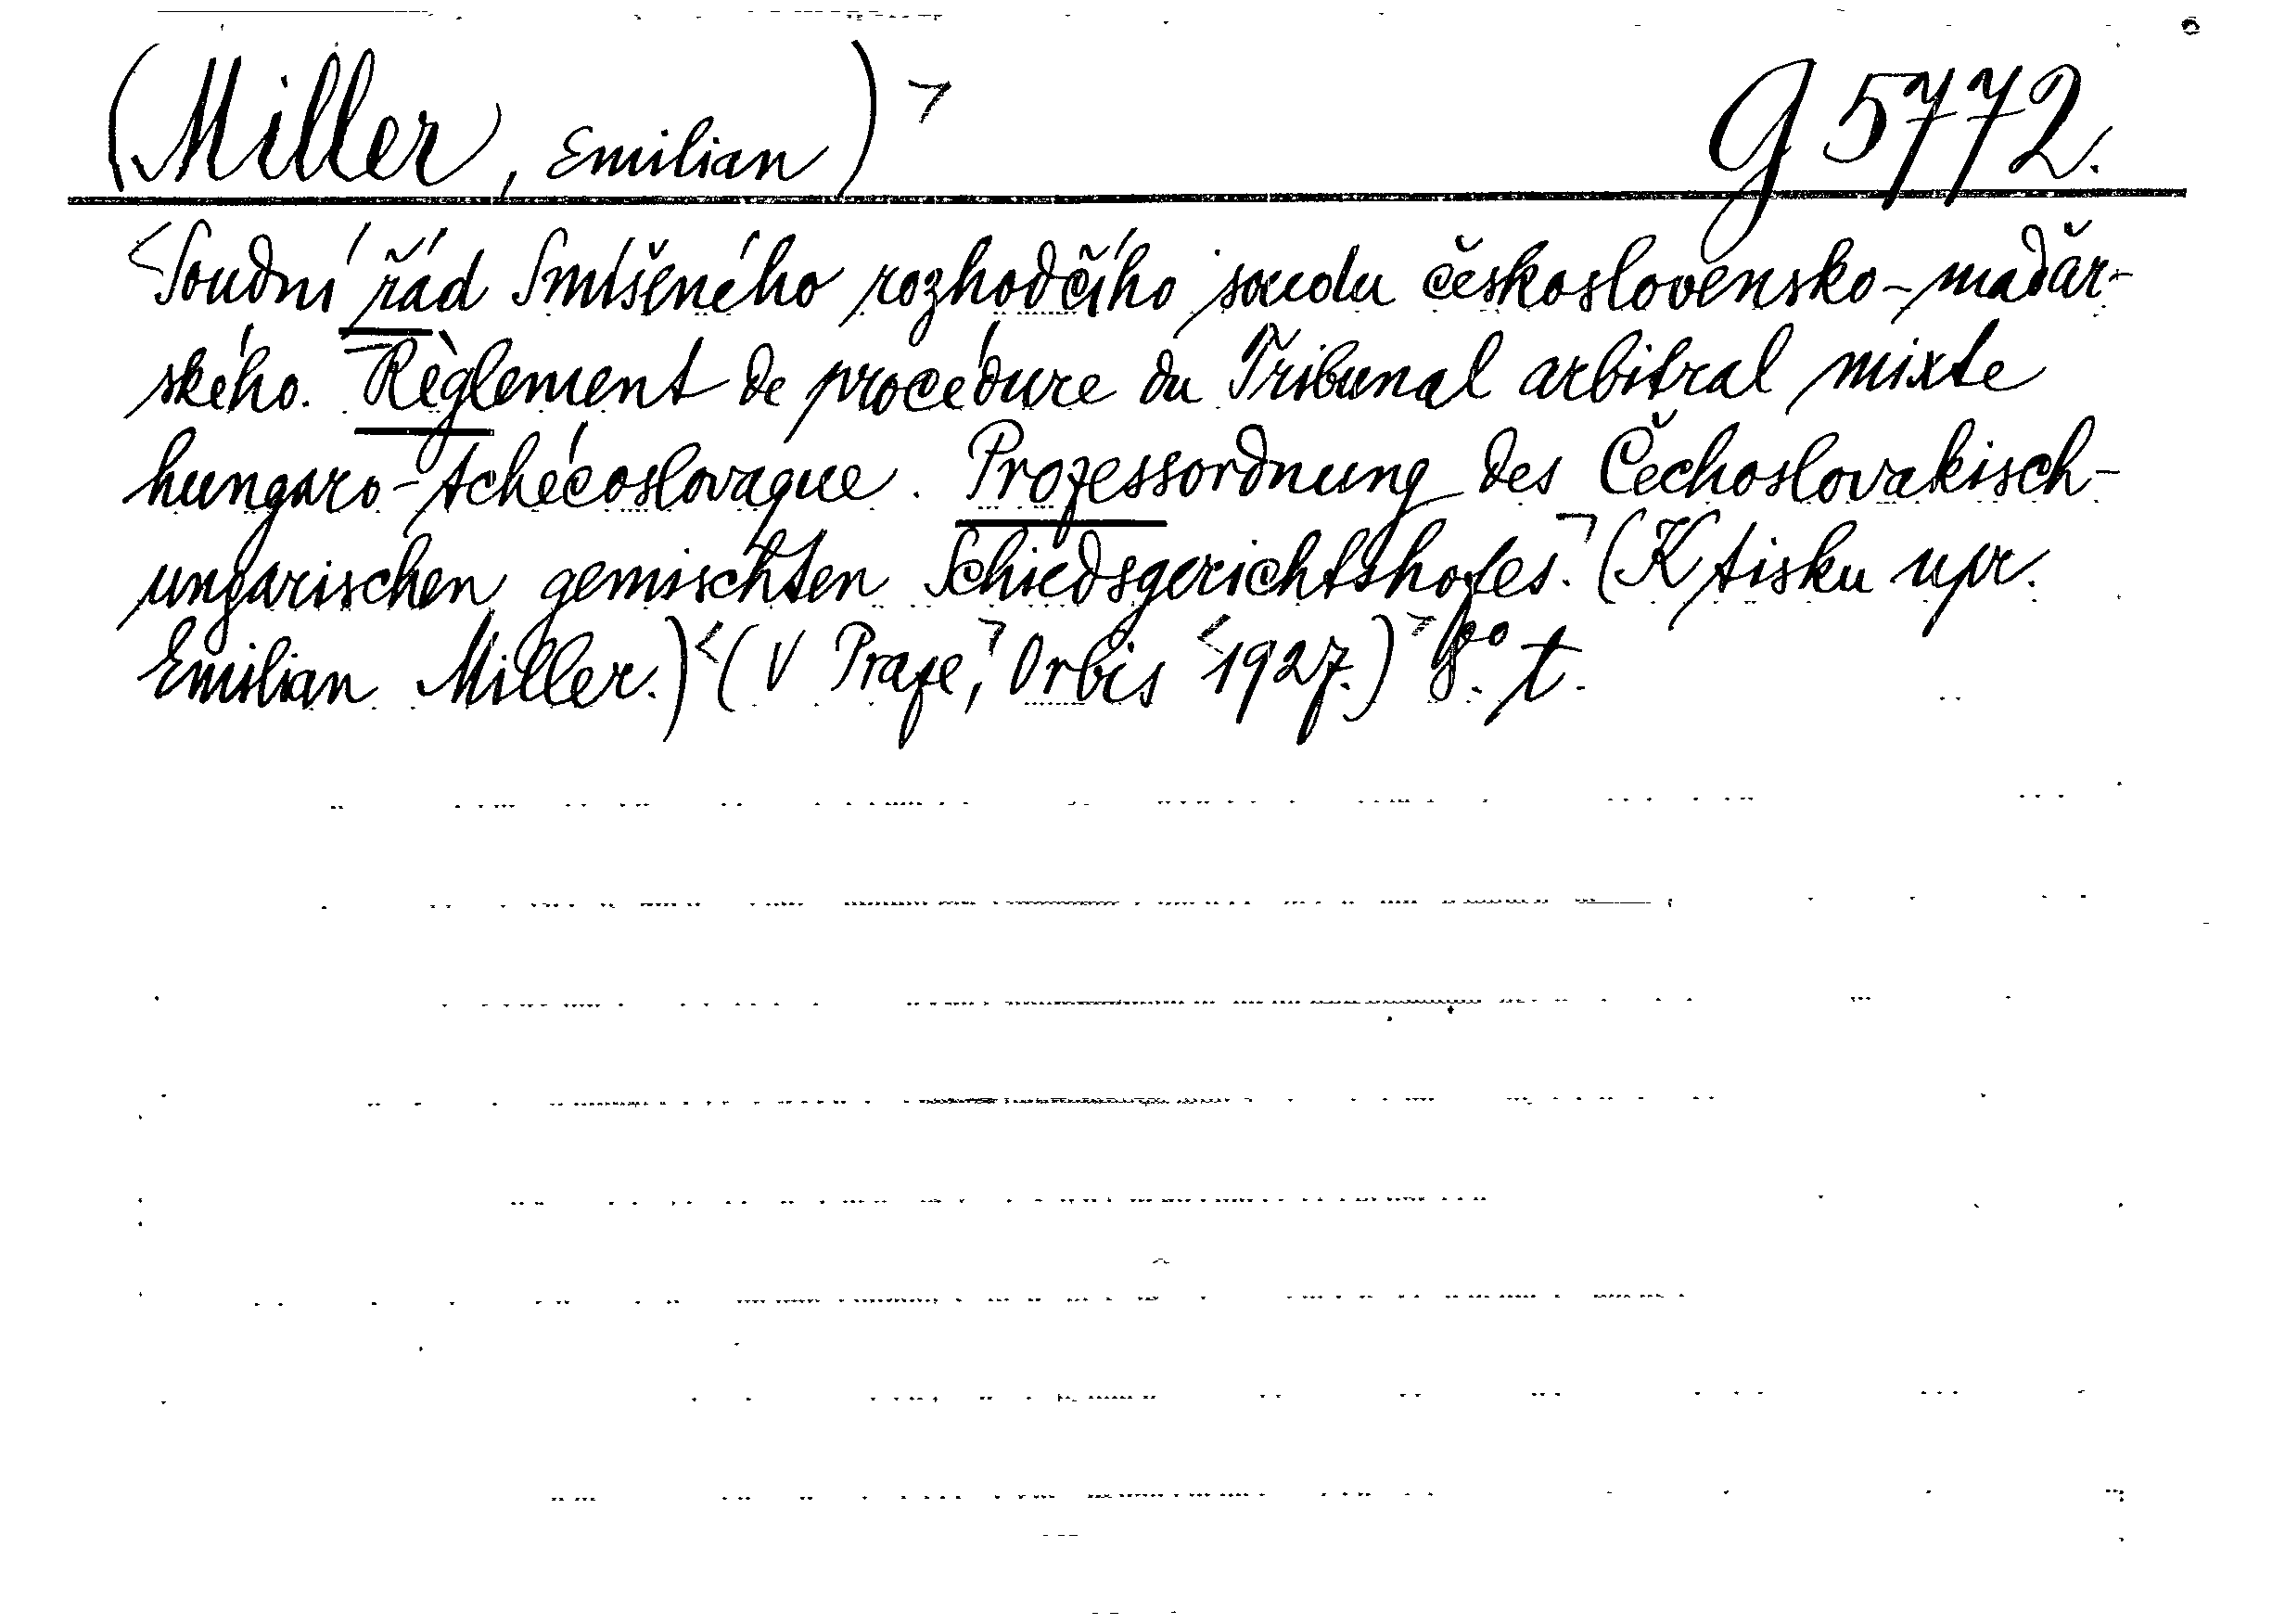 (Miller, Emilian) G 5772.
Soudní řád Smíšeného rozhodčího soudu československo-maďar-
ského. Règlement de procédure du Tribunal arbitral mixte
hungaro-tchécoslovaque. Prozessordnung des Čechoslovakisch-
ungarischen gemischten Schiedsgerichtshofes. (K tisku upr.
Emilian Miller.) (V Praze, Orbis 1927.) 8° t.